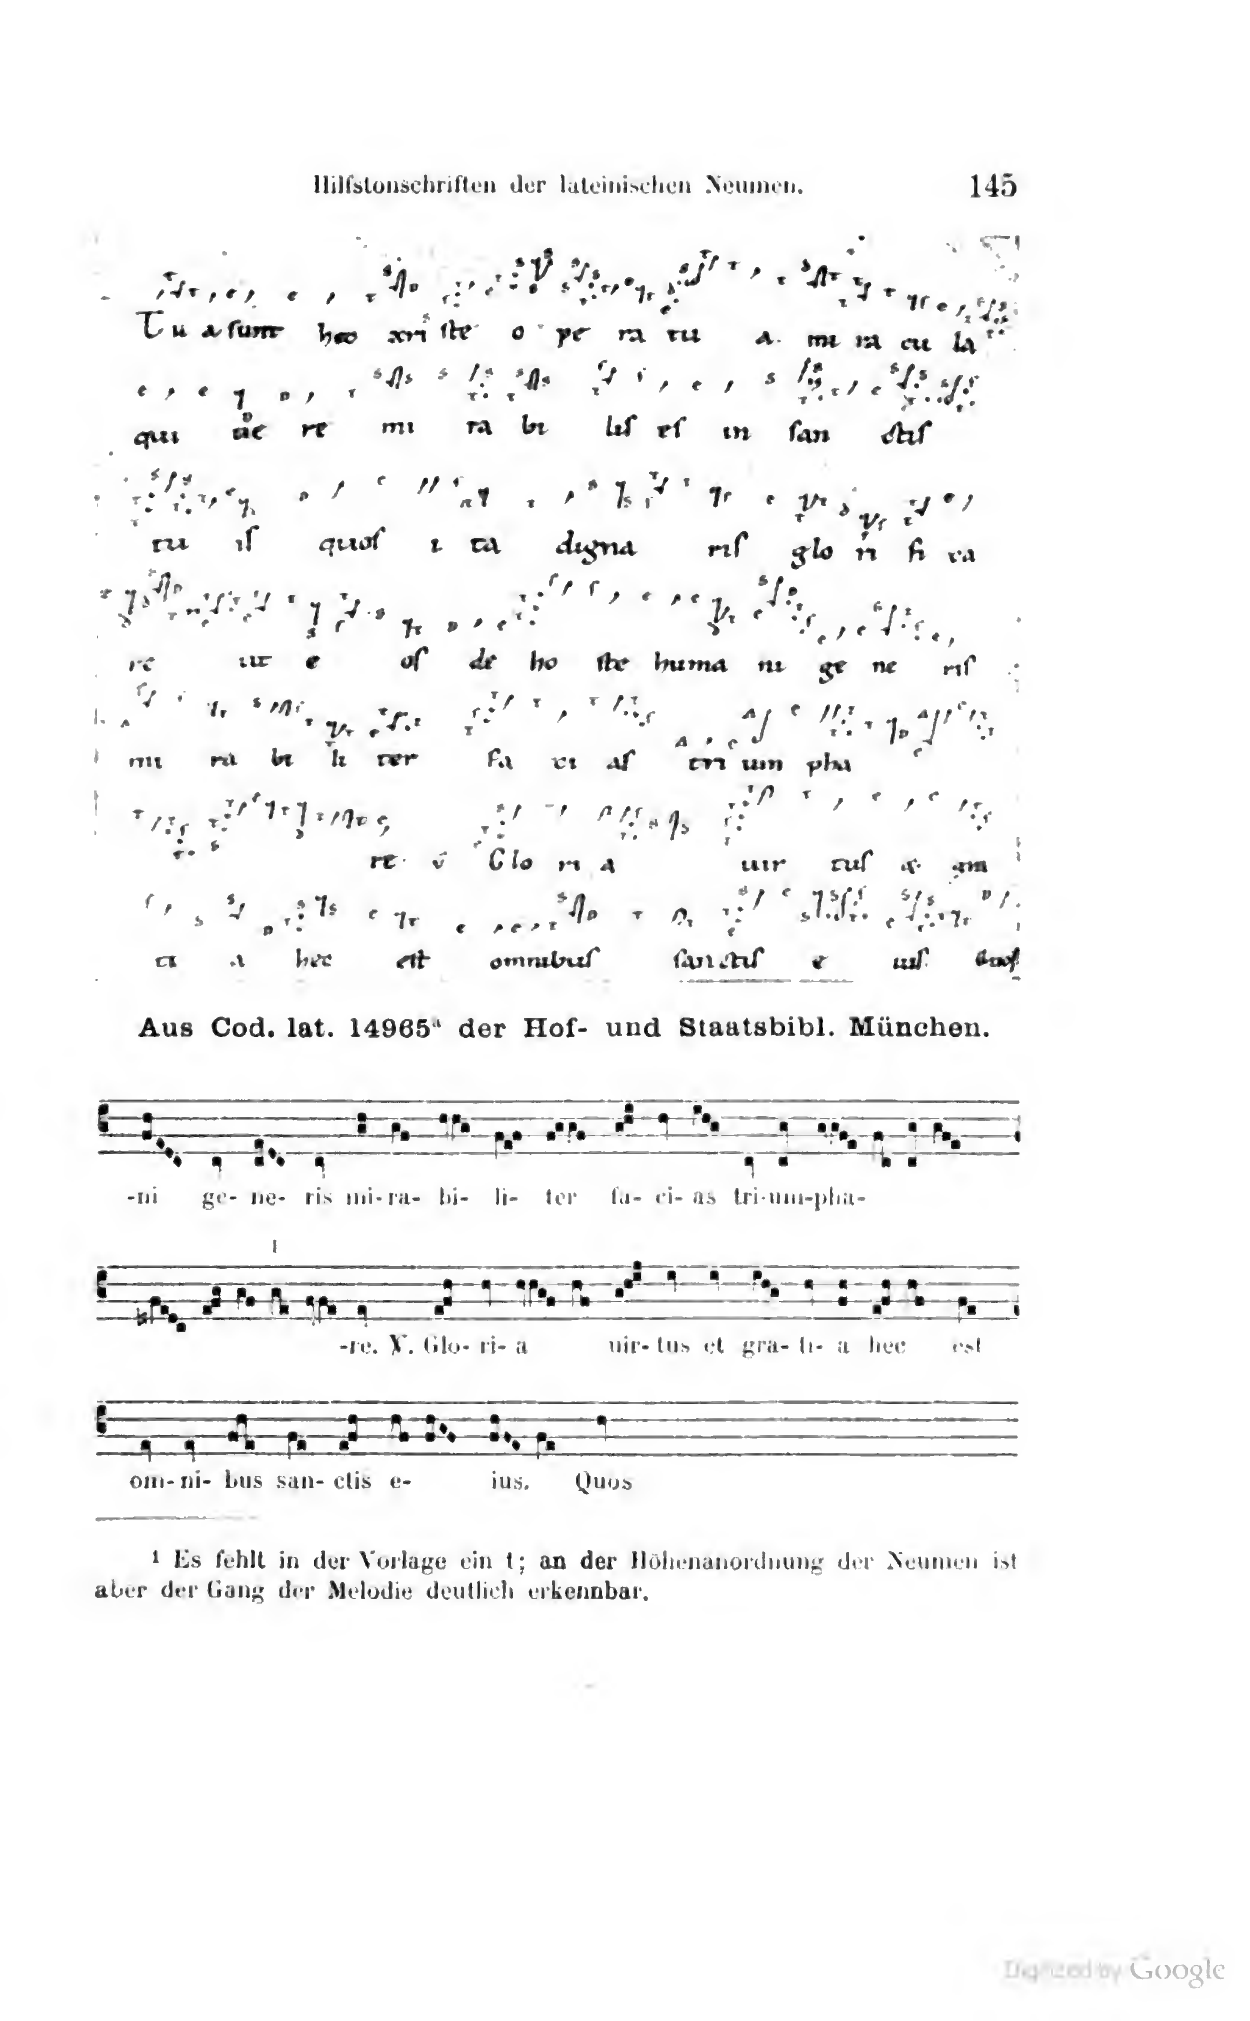 Hilfstonschriften der lateinischen Neumen. 145
Tu a sunt hec xri ste o pe ra tu a mi ra cu la
qui ue re mi ra bi lis es in san ctis
tu is quos i ta digna ris glo ri fi ca
re ut e os de ho ste huma ni ge ne ris
mi ra bi li ter fa ci as tri um pha
re v Glo ri a uir tus & gra
ti a hec est omnibus sanctis e ius. Quos
Aus Cod. lat. 14965a der Hof- und Staatsbibl. München.
-ni ge- ne- ris mi-ra- bi- li- ter fa- ci- as tri-um-pha-
1
-re. V. Glo- ri- a uir- tus et gra- ti- a hec est
om- ni- bus san- ctis e- ius. Quos
1 Es fehlt in der Vorlage ein t; an der Höhenanordnung der Neumen ist
aber der Gang der Melodie deutlich erkennbar.
Digitized by Google